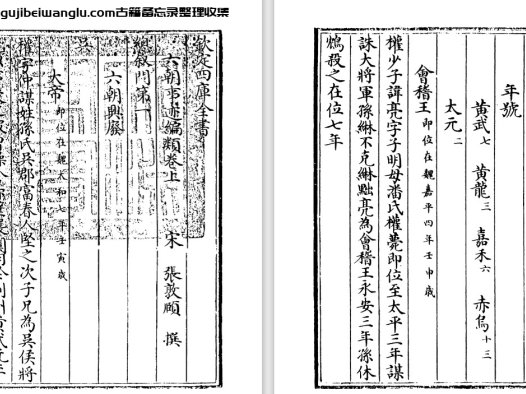 gujibeiwanglu.com古籍备忘录整理收集
年號
黃武七 黃龍三 嘉禾六 赤烏十三
太元二
會稽王即位在魏嘉平四年壬申歲
權少子諱亮字子明母潘氏權薨即位至太平三年謀
誅大將軍孫綝不克綝黜亮為會稽王永安三年孫休
鴆殺之在位七年
欽定四庫全書
六朝事迹編類卷上
宋 張敦頤 撰
總敘門第一
六朝興廢
吳
大帝即位在魏太和七年壬寅歲
權字仲謀姓孫氏吳郡富春人堅之次子兄為吳侯將